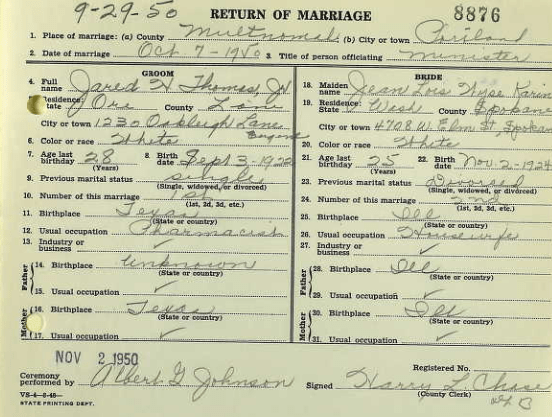 9-29-50 RETURN OF MARRIAGE 8876
1. Place of marriage: (a) County Multnomah (b) City or town Portland
2. Date of marriage Oct. 7-1950 3. Title of person officiating Minister
GROOM
4. Full name Jared H Thomas, Jr
5. Residence: State Ore County Lane
City or town 1230 Oakleigh Lane Eugene
6. Color or race White
7. Age last birthday 28 (Years) 8. Birth date Sept 3-1922
9. Previous marital status Single (Single, widowed, or divorced)
10. Number of this marriage 1st (1st, 2d, 3d, etc.)
11. Birthplace Texas (State or country)
12. Usual occupation Pharmacist
13. Industry or business ✓
Father
14. Birthplace Unknown (State or country)
15. Usual occupation ✓
Mother
16. Birthplace Texas (State or country)
17. Usual occupation ✓
BRIDE
18. Maiden name Jean Lois Wyse Karin
19. Residence: State Wash County Spokane
City or town 4728 W. Elm St, Spokane
20. Color or race White
21. Age last birthday 25 (Years) 22. Birth date Nov. 2-1924
23. Previous marital status Divorced (Single, widowed, or divorced)
24. Number of this marriage 2nd (1st, 2d, 3d, etc.)
25. Birthplace Ill (State or country)
26. Usual occupation Housewife
27. Industry or business ✓
Father
28. Birthplace Ill (State or country)
29. Usual occupation ✓
Mother
30. Birthplace Ill (State or country)
31. Usual occupation ✓
NOV 2 1950
Ceremony performed by Albert G Johnson
Registered No.
Signed Harry L. Chase
(County Clerk)
VS-4
STATE PRINTING DEPT.